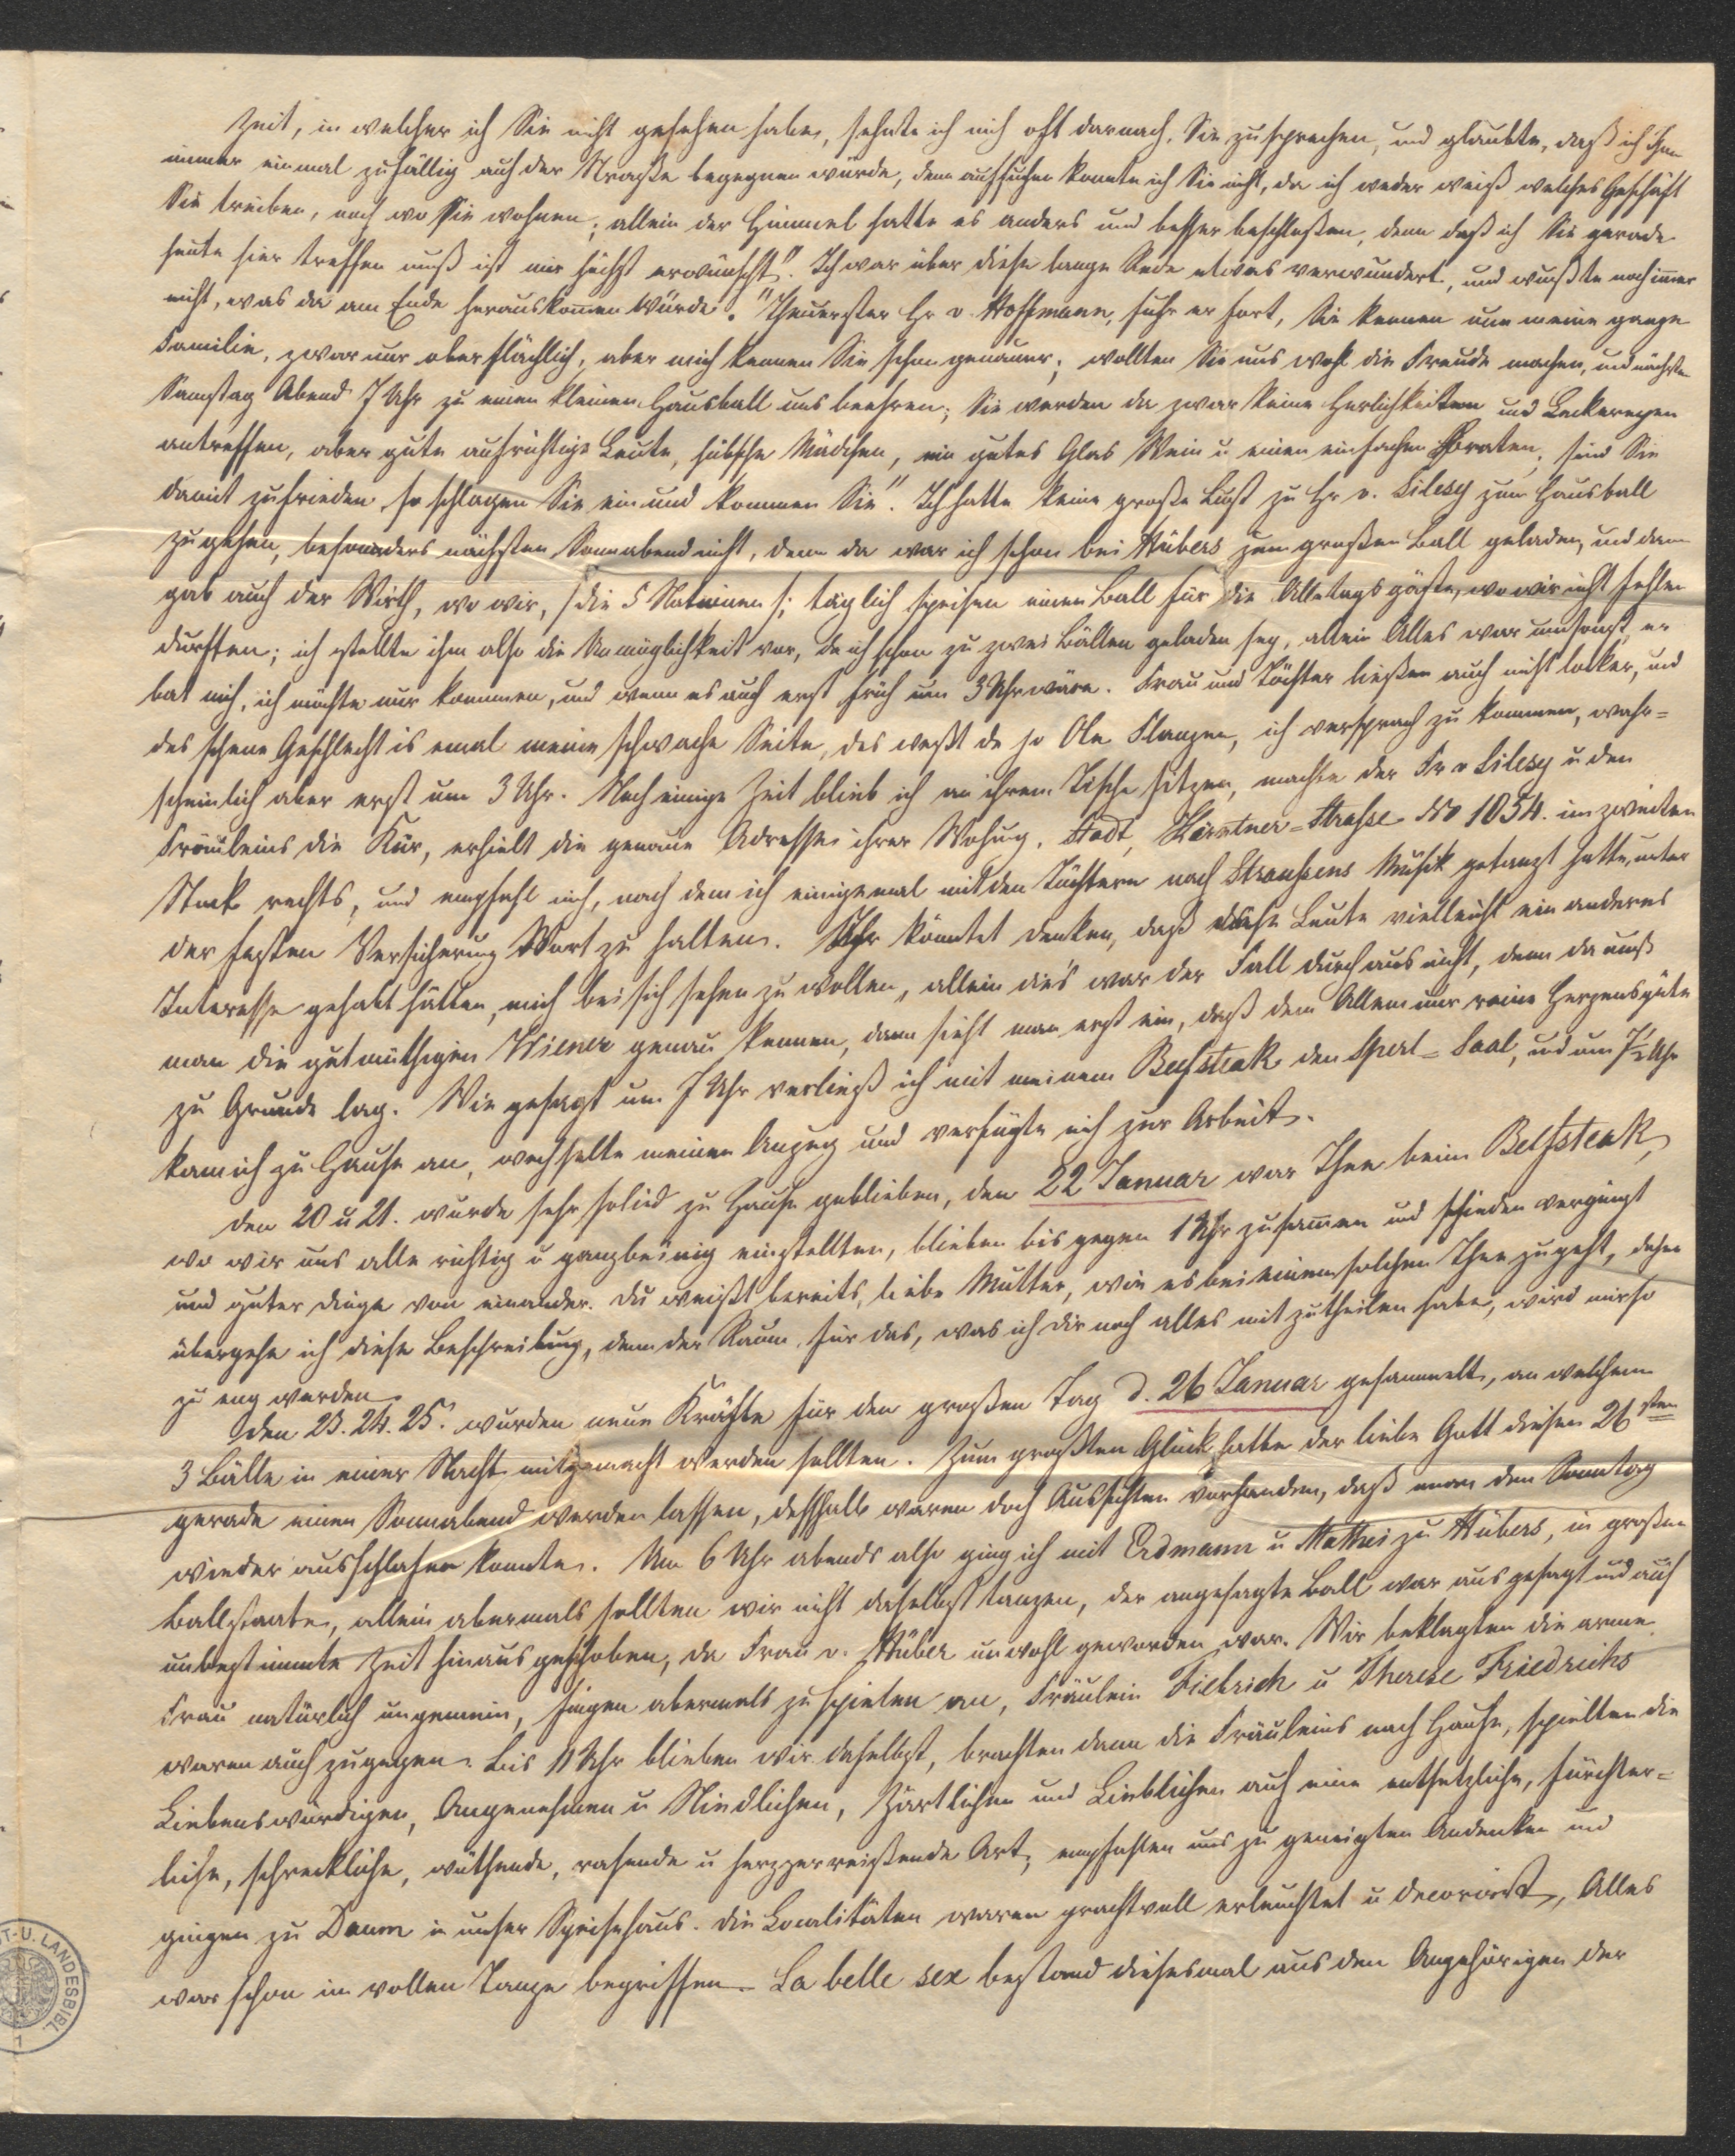 Zeit, in welcher ich Sie nicht gesehen habe, sehnte ich mich oft darnach, Sie zu sprechen, und glaubte, daß ich Ihnen
immer einmal zufällig auf der Straße begegnen würde, denn aufsuchen konnte ich Sie nicht, da ich weder weiß welches Geschäft
Sie treiben, noch wo Sie wohnen; allein der Himmel hatte es anders und besser beschloßen, denn daß ich Sie gerade
heute hier treffen muß ist mir höchst erwünscht". Ich war über diese lange Rede etwas verwundert, und wußte noch immer
nicht, was da am Ende herauskommen würde. "Theuerster Hr v. Hoffmann, fuhr er fort, Sie kennen nun meine ganze
Familie, zwar nur oberflächlich, aber mich kennen Sie schon genauer; wollten Sie uns wohl die Freude machen, und nächsten
Samstag Abend 7 Uhr zu einen kleinen Hausball uns beehren; Sie werden da zwar keine Herlichkeiten und Leckereyen
antreffen, aber gute aufrichtige Leute, hübsche Mädchen, ein gutes Glas Wein u einen einfachen Braten; sind Sie
damit zufrieden so schlagen Sie ein und kommen Sie". Ich hatte keine große Lust zu Hr v. Silesy zum Hausball
zu gehen, besonders nächsten Sonnabend nicht, denn da war ich schon bei Hübers zum großen Ball geladen, und dann
gab auch der Wirth, wo wir, /: die 5 Nationen :/ täglich speisen einen Ball für die Alletagsgäste, wo wir nicht fehlen
durften; ich stellte ihm also die Unmöglichkeit vor, da ich schon zu zwei Bällen geladen sey, allein Alles war umsonst, er
bat mich, ich möchte nur kommen, und wenn es auch erst früh um 3 Uhr wäre. Frau und Töchter ließen auch nicht locker, und
des schene Geschlecht is emal meine schwache Seite, des weßt de jo Ole Flanzen, ich versprach zu kommen, wahr=
scheinlich aber erst um 3 Uhr. Noch einige Zeit blieb ich an ihrem Tische sitzen, machte der Fr v Silesy u den
Fräuleins die Kür, erhielt die genaue Adresse ihrer Wohnung, Stadt, Kärntner=Strasse No 1054. im zweiten
Stock rechts, und empfahl mich, nach dem ich einigemal mit den Töchtern nach Straußens Musik getanzt hatte, unter
der festen Versicherung Wort zu halten. Ihr könntet denken, daß diese Leute vielleicht ein anderes
Interesse gehabt hätten, mich bei sich sehen zu wollen, allein dies war der Fall durchaus nicht, denn da muß
man die gutmüthigen Wiener genau kennen, dann sieht man erst ein, daß dem Allem nur reine Herzensgüte
zu Grunde lag. Wie gesagt um 7 Uhr verließ ich mit meinem Beefsteak den Sperl=Saal, und um 7½ Uhr
kam ich zu Hause an, wechselte meinen Anzug und verfügte mich zur Arbeit.
Den 20 u 21. wurde sehr solid zu Hause geblieben, den 22 Januar war Thee beim Beefsteak,
wo wir uns alle richtig u ganzbeinig einstellten, blieben bis gegen 1 Uhr zusammen und schieden vergnügt
und guter Dinge von einander. Du weißt bereits, liebe Mutter, wie es bei einem solchen Thee zugeht, daher
übergehe ich diese Beschreibung, denn der Raum für das, was ich dir noch alles mitzutheilen habe, wird mir so
zu eng werden.
Den 23. 24. 25. wurden neue Kräfte für den großen Tag d. 26 Januar gesammelt, an welchem
3 Bälle in einer Nacht mitgemacht werden sollten. Zum großten Glück hatte der liebe Gott diesen 26sten
gerade einen Sonnabend werden lassen, desshalb waren doch Aussichten vorhanden, daß man den Sonntag
wieder ausschlafen konnte. Um 6 Uhr abends also ging ich mit Erdmann u Mathei zu Hübers, in großen
Ballstaate, allein abermals sollten wir nicht daselbst tanzen, der angesagte Ball war ausgesagt und auf
unbestimmte Zeit hinaus geschoben, da Frau v. Hüber unwohl geworden war. Wir beklagten die arme
Frau natürlich ungemein, fingen abermals zu spielen an, Fräulein Fiebrich u Therese Friedrichs
waren auch zugegen. Bis 11 Uhr blieben wir daselbst, brachten dann die Fräuleins nach Hause, spielten die
Liebenswürdigen, Angenehmen u Niedlichen, Zärtlichen und Lieblichen auf eine entsetzliche, fürchter=
liche, schreckliche, wüthende, rasende u herzzerreißende Art, empfahlen uns zu geneigten Andenken und
gingen zu Daum in unser Speisehaus. Die Localitäten waren prachtvoll erleuchtet u decorirt, Alles
war schon im vollen Tanze begriffen. La belle sex bestand diesesmal aus den Angehörigen der
T.-U. LANDESBIBL.